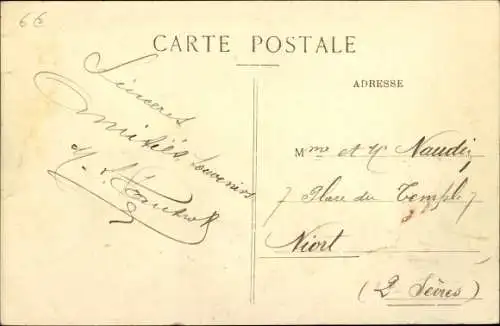 66
CARTE POSTALE
Sincères
amitiés, souvenirs
ADRESSE
Mme et Mr Naudin
7 Place du Temple 7
Niort
(2 Sèvres)